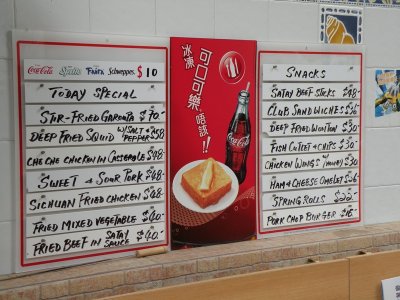 Coca-Cola Sprite Fanta Schweppes $10
TODAY SPECIAL
STIR-FRIED GAROUPA $70
DEEP FRIED SQUID W/SALT & PEPPER $58
CHE CHE CHICKEN IN CASSEROLE $48
SWEET & SOUR PORK $48
SICHUAN FRIED CHICKEN $48
FRIED MIXED VEGETABLE $40
FRIED BEEF IN SATAY SAUCE $40
冰凍
可口可樂,唔該!!
Coca-Cola
SNACKS
SATAY BEEF STICKS $48
CLUB SANDWICHES
DEEP FRIED WONTON $30
FISH CUTLET & CHIPS $30
CHICKEN WINGS $30
HAM & CHEESE OMELET
SPRING ROLLS
PORK CHOP BURGER